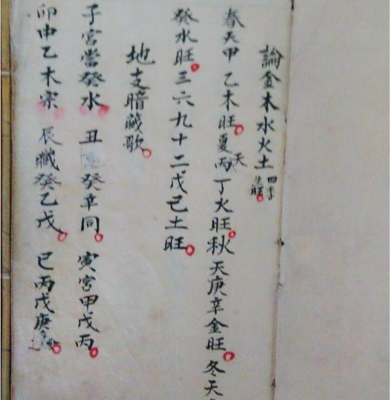 論金木水火土 四季
春天甲乙木旺夏天丙丁火旺秋天庚辛金旺冬天
癸水旺三六九十二戊己土旺
地支暗藏歌
子宮當癸水 丑癸辛同 寅宮甲戊丙
卯中乙木宗 辰藏癸乙戊 巳丙戊庚